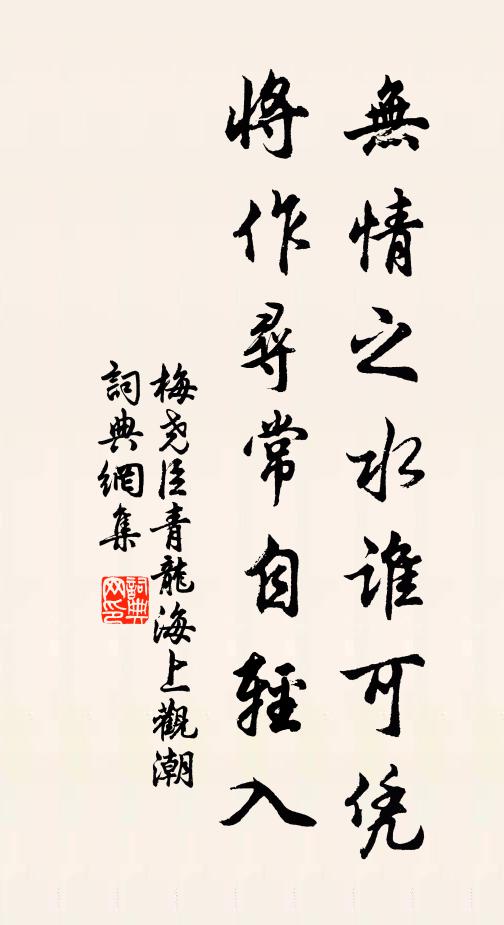 無情之水誰可凭
將作尋常自輕入
梅尭臣青龍海上觀潮
詞典網集
詞典
网印